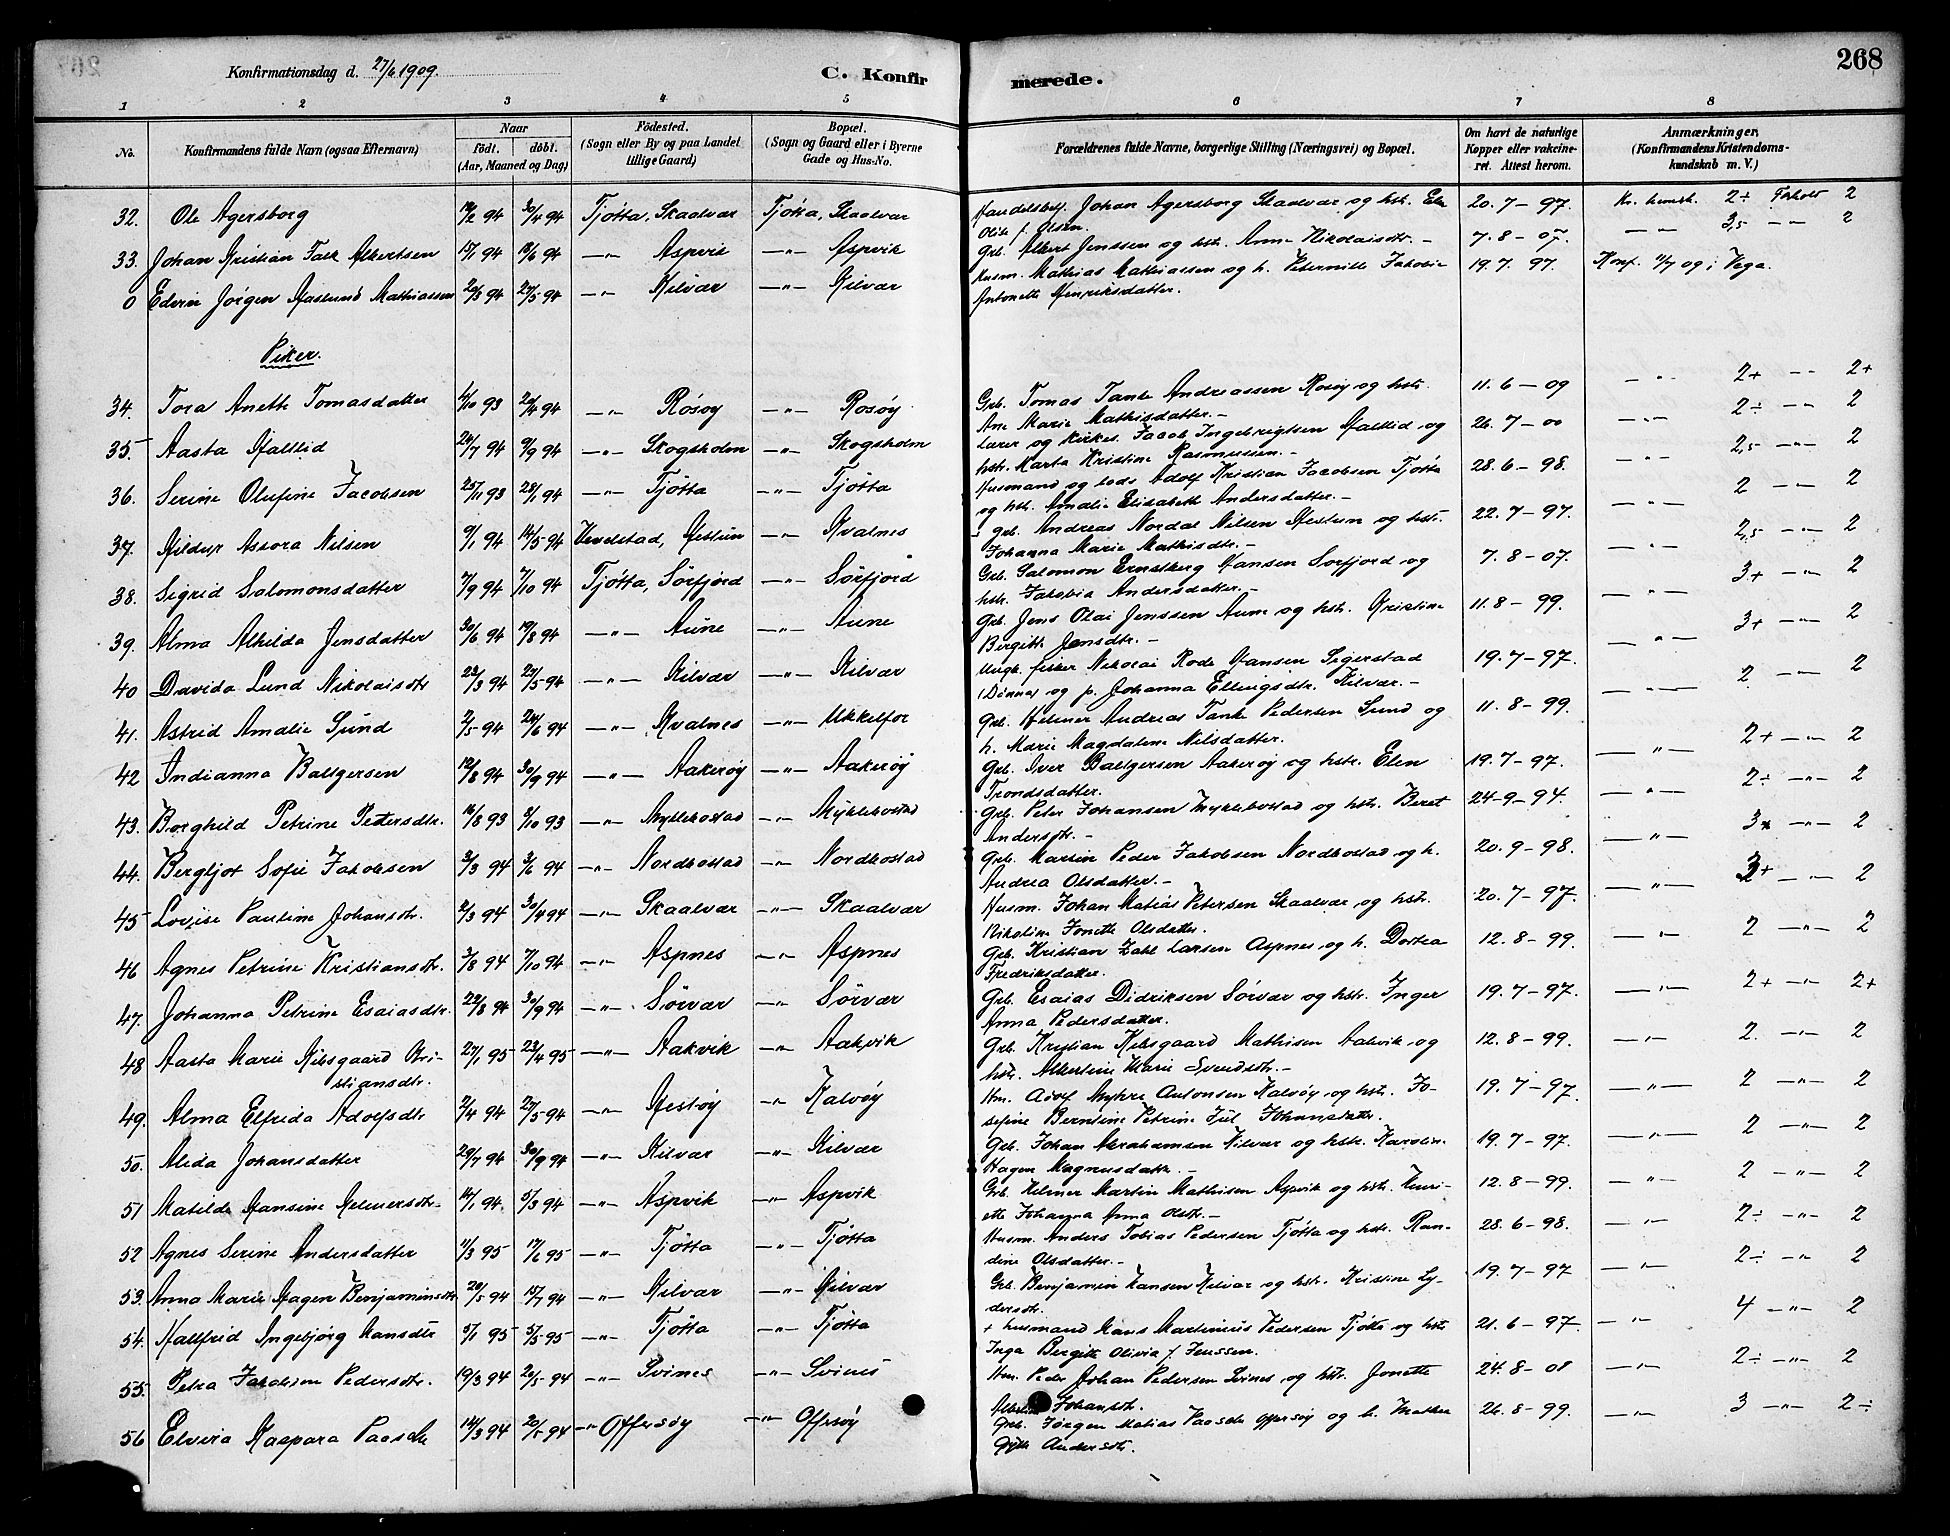 268
Konfirmationsdag d. 27/6 1909.
C. Konfirmerede.
1 2 3 4 5 6 7 8
No. Konfirmandens fulde Navn (ogsaa Efternavn) Naar født. døbt. (Aar, Maaned og Dag) Födested. (Sogn eller By og paa Landet tillige Gaard) Bopæl. (Sogn og Gaard eller i Byerne Gade og Hus-No. Forældrenes fulde Navne, borgerlige Stilling (Næringsvei) og Bopæl. Om havt de naturlige Kopper eller vaccineret. Attest herom. Anmærkninger (Konfirmandens Kristendomskundskab m. V.)
32. Ole Agersborg 94 30/4 94 Tjøtta, Skaalvær Tjøtta, Skaalvær Johan Agersborg Skaalvær og hstr. 20.7-97. Kr. kunsk. 2÷ Forhold 2
Olsen.
33. Johan Kristian Falk Albertsen 17/1 94 18/6 94 -"- Aspvik -"- Aspvik Grb. Albert Jenssen og hstr. Anne Nikolaisdtr. - 7.8-07. -"- 3,5 -"- 2
0 Edvin Jörgen Aaslund Mathiassen 22/3 94 27/5 94 -"- Kilvær -"- Kilvær Husm. Mathias Mathiassen og h. Peternille Jakobie 19.7.97. Konf. 11/7 09 i Vega.
Antonette Henriksdatter.
Piker.
34. Tora Anette Tomasdatter 4/10 93 22/4 94 -"- Rösöy -"- Rosöy Grb. Tomas Tank Andreassen Rosöy og hstr. 11.6-09 -"- 2+ -"- 2+
Ane Marie Mathisdatter.-
35. Aasta Halltid 24/7 94 9/9 94 -"- Skogsholm -"- Skogsholm Lærer og kirkes. Jacob Ingebrigtsen Halltid og 26.7-00 -"- 2÷ -"- 2
hstr. Marta Kristine Rasmussen.-
36. Serine Olufine Jacobsen 25/11 93 28/1 94 -"- Tjötta -"- Tjøtta Husmand og lods Adolf Kristian Jacobsen Tjøtta 28.6-98. -"- 2,5 -"- 2
og hstr. Amalie Elisabeth Andersdatter.-
37. Hildur Assora Nilsen 9/1 94 14/5 94 Vevelstad, Hestun -"- Kvalnes grb. Andreas Nordal Nilsen Hestun og hstr. 22.7-97. -"- 2 -"- 2
Johanna Marie Mathisdtr.-
38. Sigrid Salomonsdatter 7/9 94 7/10 94 Tjøtta, Sörfjord -"- Sörfjord Grb. Salomon Ernstberg Hansen Sorfjord og 7.8-07. -"- 2,5 -"- 2
hstr. Jakobia Andersdatter.-
39. Alma Alhilda Jensdatter 30/6 94 19/8 94 -"- Aune -"- Aune Grb. Jens Olai Jenssen Aune og hstr. Kristine 11.8-99. -"- 3+ -"- 2
Bergitte Jensdtr.-
40 Davida Lund Nikolaisdtr 23/3 94 27/5 94 -"- Kilvær -"- Kilvær Ungk. fisker Nikolai Rode Hansen Sigerstad 19.7-97. -"- 3+ -"- 2
(Dönna) og p. Johanna Ellingsdtr. Kilvær.-
41. Astrid Amalie Sund 2/5 94 24/6 94 -"- Kvalnes -"- Ukkelfor Grb. Helmer Andreas Tank Pedersen Sund og 11.8-99. -"- 2 -"- 2
h. Marie Magdalene Nilsdatter.
42 Indianna Baltgersen 12/8 94 30/9 94 -"- Aakeröy -"- Aakeröy Grb. Iver Baltgersen Aakerøy og hstr. Elen 19.7-97. -"- 2+ -"- 2
Trondsdatter.
43. Borghild Petrine Petersdtr. 16/8 93 8/10 93 -"- Myklebostad -"- Myklebostad Grb. Peter Johansen Myklebostad og hstr. Beret 24-9-94. -"- 2÷ -"- 2
Andersdtr.-
44. Bergljot Sofie Jakobsen 3/3 94 3/6 94 -"- Nordbostad -"- Nordbostad Grb. Martin Peder Jakobsen Nordbostad og h. 20.9-98. -"- 3 -"- 2
Andrea Olsdatter.-
45 Lovise Pauline Johansdtr. 2/3 94 30/4 94 -"- Skaalvær -"- Skaalvær Husm. Johan Matias Petersen Skaalvær og hstr. 20.7-97. -"- 3+ -"- 2
Nikoline Jonette Olsdatter.
46 Agnes Petrine Kristiansdtr. 3/8 94 7/10 94 -"- Aspnes -"- Aspnes Grb. Kristian Zahl Larsen Aspnes og h. Dortea 12.8-99. -"- 2 -"- 2
Fredriksdatter.
47. Johanna Petrine Esaiasdtr. 22/8 94 30/9 94 -"- Sörvær -"- Sörvær Grb. Esaias Didriksen Sörvær og hstr. Inger 19.7-97. -"- 2+ -"- 2+
Anna Pedersdatter.
48 Aasta Marie Kilsgaard Kri- 27/1 95 23/4 95 -"- Aakvik -"- Aakvik Grb. Kristian Kilsgaard Mathisen Aakvik og 12.8-99. -"- 2. -"- 2
stiansdtr. hstr. Albertine Marie Svendsdtr.-
49. Alma Elfrida Adolfsdtr 2/4 94 27/5 94 -"- Hestöy -"- Kalvöy Hm. Adolf Myhre Antonsen Kalvöy og hstr. Jo- 19.7-97. -"- 2 -"- 2
sefine Berntine Petrine Jul Johansdatter.
50. Alida Johansdatter 29/7 94 30/9 94 -"- Kilvær -"- Kilvær Grb. Johan Abrahamsen Kilvær og hstr. Karolin 19.7-97. -"- 2 -"- 2
Hagen Magnusdatt.-
51 Matilde Hansine Helmersdtr. 14/1 94. 5/3 94 -"- Aspvik -"- Aspvik Grb. Helmer Martin Mathisen Aspvik og hstr. Henri- 12.8-99. -"- 2 -"- 2
ette Johanna Anna Olsdtr.-
52 Agnes Serine Andersdatter 11/3 95 17/6 95 -"- Tjøtta -"- Tjøtta Husm. Anders Tobias Pedersen Tjøtta og hstr. Ran- 28.6-98. -"- 2÷ -"- 2
dine Olsdatter.-
53. Anna Marie Hagen Benjaminsdtr 20/5 94 15/7 94 -"- Kilvær -"- Kilvær Grb. Benjamin Hansen Kilvær og hstr. Kristine Ly- 19.7-97 -"- 2÷ -"- 2
dersdtr.
54. Hallfrid Ingebjørg Hansdtr 5/1 95 5/5 95 -"- Tjøtta -"- Tjøtta + husmand Hans Martinius Pedersen Tjøtta og hstr 21.6-97. -"- 4 -"- 2
Inga Bergitte Olivia f. Jenssen.
55. Petra Jacobine Pedersdtr. 19/3 94 20/5 94 -"- Svines -"- Svines Hm. Peder Johan Pedersen Svines og hstr. Jonette 24.8-08 -"- 2÷ -"- 2
Johansdtr.
56 Elvira Kaspara Paasche 14/3 94 20/5 94 -"- Offersøy -"- Offersøy Grb. Jørgen Matias Paasche Offersøy og h. 26.8-99. -"- 3 -"- 2÷
Andersdtr.